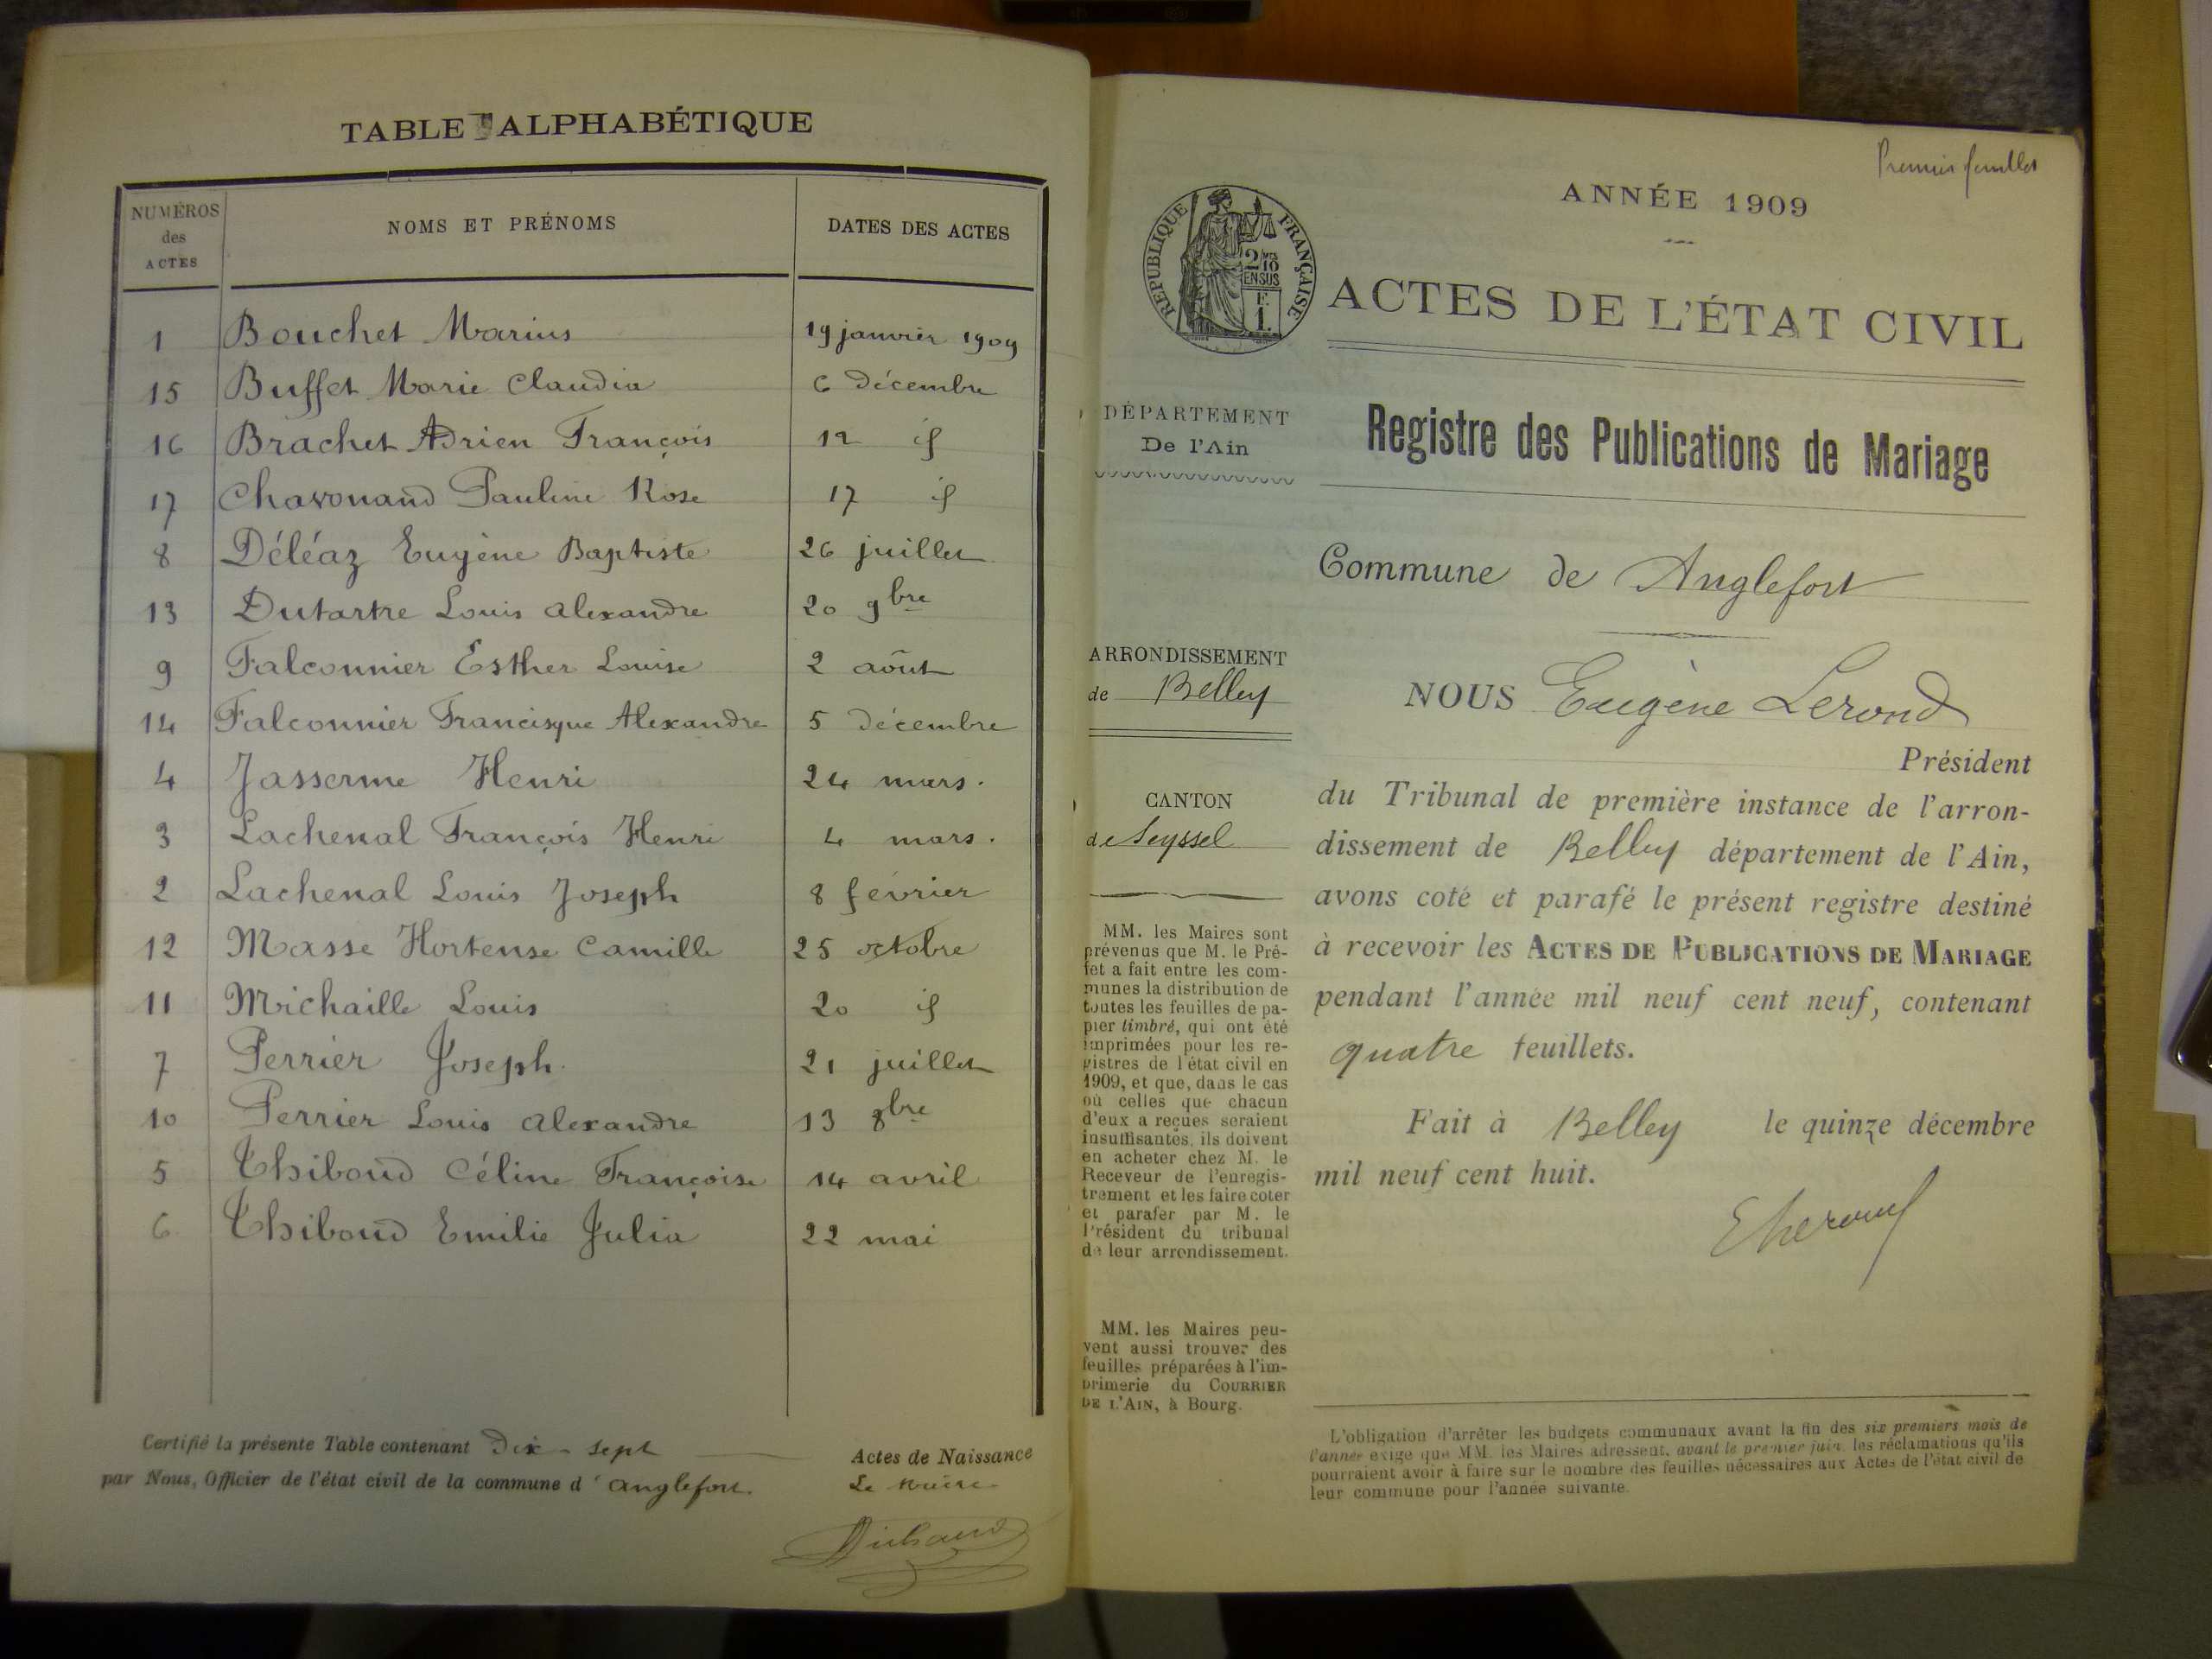 TABLE ALPHABÉTIQUE
NUMÉROS des ACTES NOMS ET PRÉNOMS DATES DES ACTES
1 Bouchet Marius 19 janvier 1909
15 Buffet Marie Claudia 6 décembre
16 Brachet Adrien François 12 id
17 Chavonand Pauline Rose 17 id
8 Déléaz Eugène Baptiste 26 juillet
13 Dutartre Louis Alexandre 20 9bre
9 Falconnier Esther Louise 2 août
14 Falconnier Francisque Alexandre 5 décembre
4 Jasserme Henri 24 mars.
3 Lachenal François Henri 4 mars.
2 Lachenal Louis Joseph 8 février
12 Masse Hortense Camille 25 octobre
11 Michaille Louis 20 id
7 Perrier Joseph. 21 juillet
10 Perrier Louis Alexandre 13 8bre
5 Thiboud Céline Françoise 14 avril
6 Thiboud Emilie Julia 22 mai
Certifié la présente Table contenant Dix-sept Actes de Naissance
par Nous, Officier de l'état civil de la commune d'Anglefort. Le Maire
Premier feuillet
ANNÉE 1909
RÉPUBLIQUE FRANÇAISE
2/10 EN SUS
F. 1.
ACTES DE L'ÉTAT CIVIL
DÉPARTEMENT
De l'Ain
Registre des Publications de Mariage
Commune de Anglefort
ARRONDISSEMENT
de Belley
CANTON
de Seyssel
MM. les Maires sont
prévenus que M. le Pré-
fet a fait entre les com-
munes la distribution de
toutes les feuilles de pa-
pier timbré, qui ont été
imprimées pour les re-
gistres de l'état civil en
1909, et que, dans le cas
où celles que chacun
d'eux a reçues seraient
insuffisantes, ils doivent
en acheter chez M. le
Receveur de l'enregis-
trement et les faire coter
et parafer par M. le
Président du tribunal
de leur arrondissement.
MM. les Maires peu-
vent aussi trouver des
feuilles préparées à l'im-
primerie du COURRIER
DE L'AIN, à Bourg.
NOUS Eugène Lerond
Président
du Tribunal de première instance de l'arron-
dissement de Belley département de l'Ain,
avons coté et parafé le présent registre destiné
à recevoir les ACTES DE PUBLICATIONS DE MARIAGE
pendant l'année mil neuf cent neuf, contenant
quatre feuillets.
Fait à Belley le quinze décembre
mil neuf cent huit.
L'obligation d'arrêter les budgets communaux avant la fin des six premiers mois de
l'année exige que MM. les Maires adressent, avant le premier juin, les réclamations qu'ils
pourraient avoir à faire sur le nombre des feuilles nécessaires aux Actes de l'état civil de
leur commune pour l'année suivante.